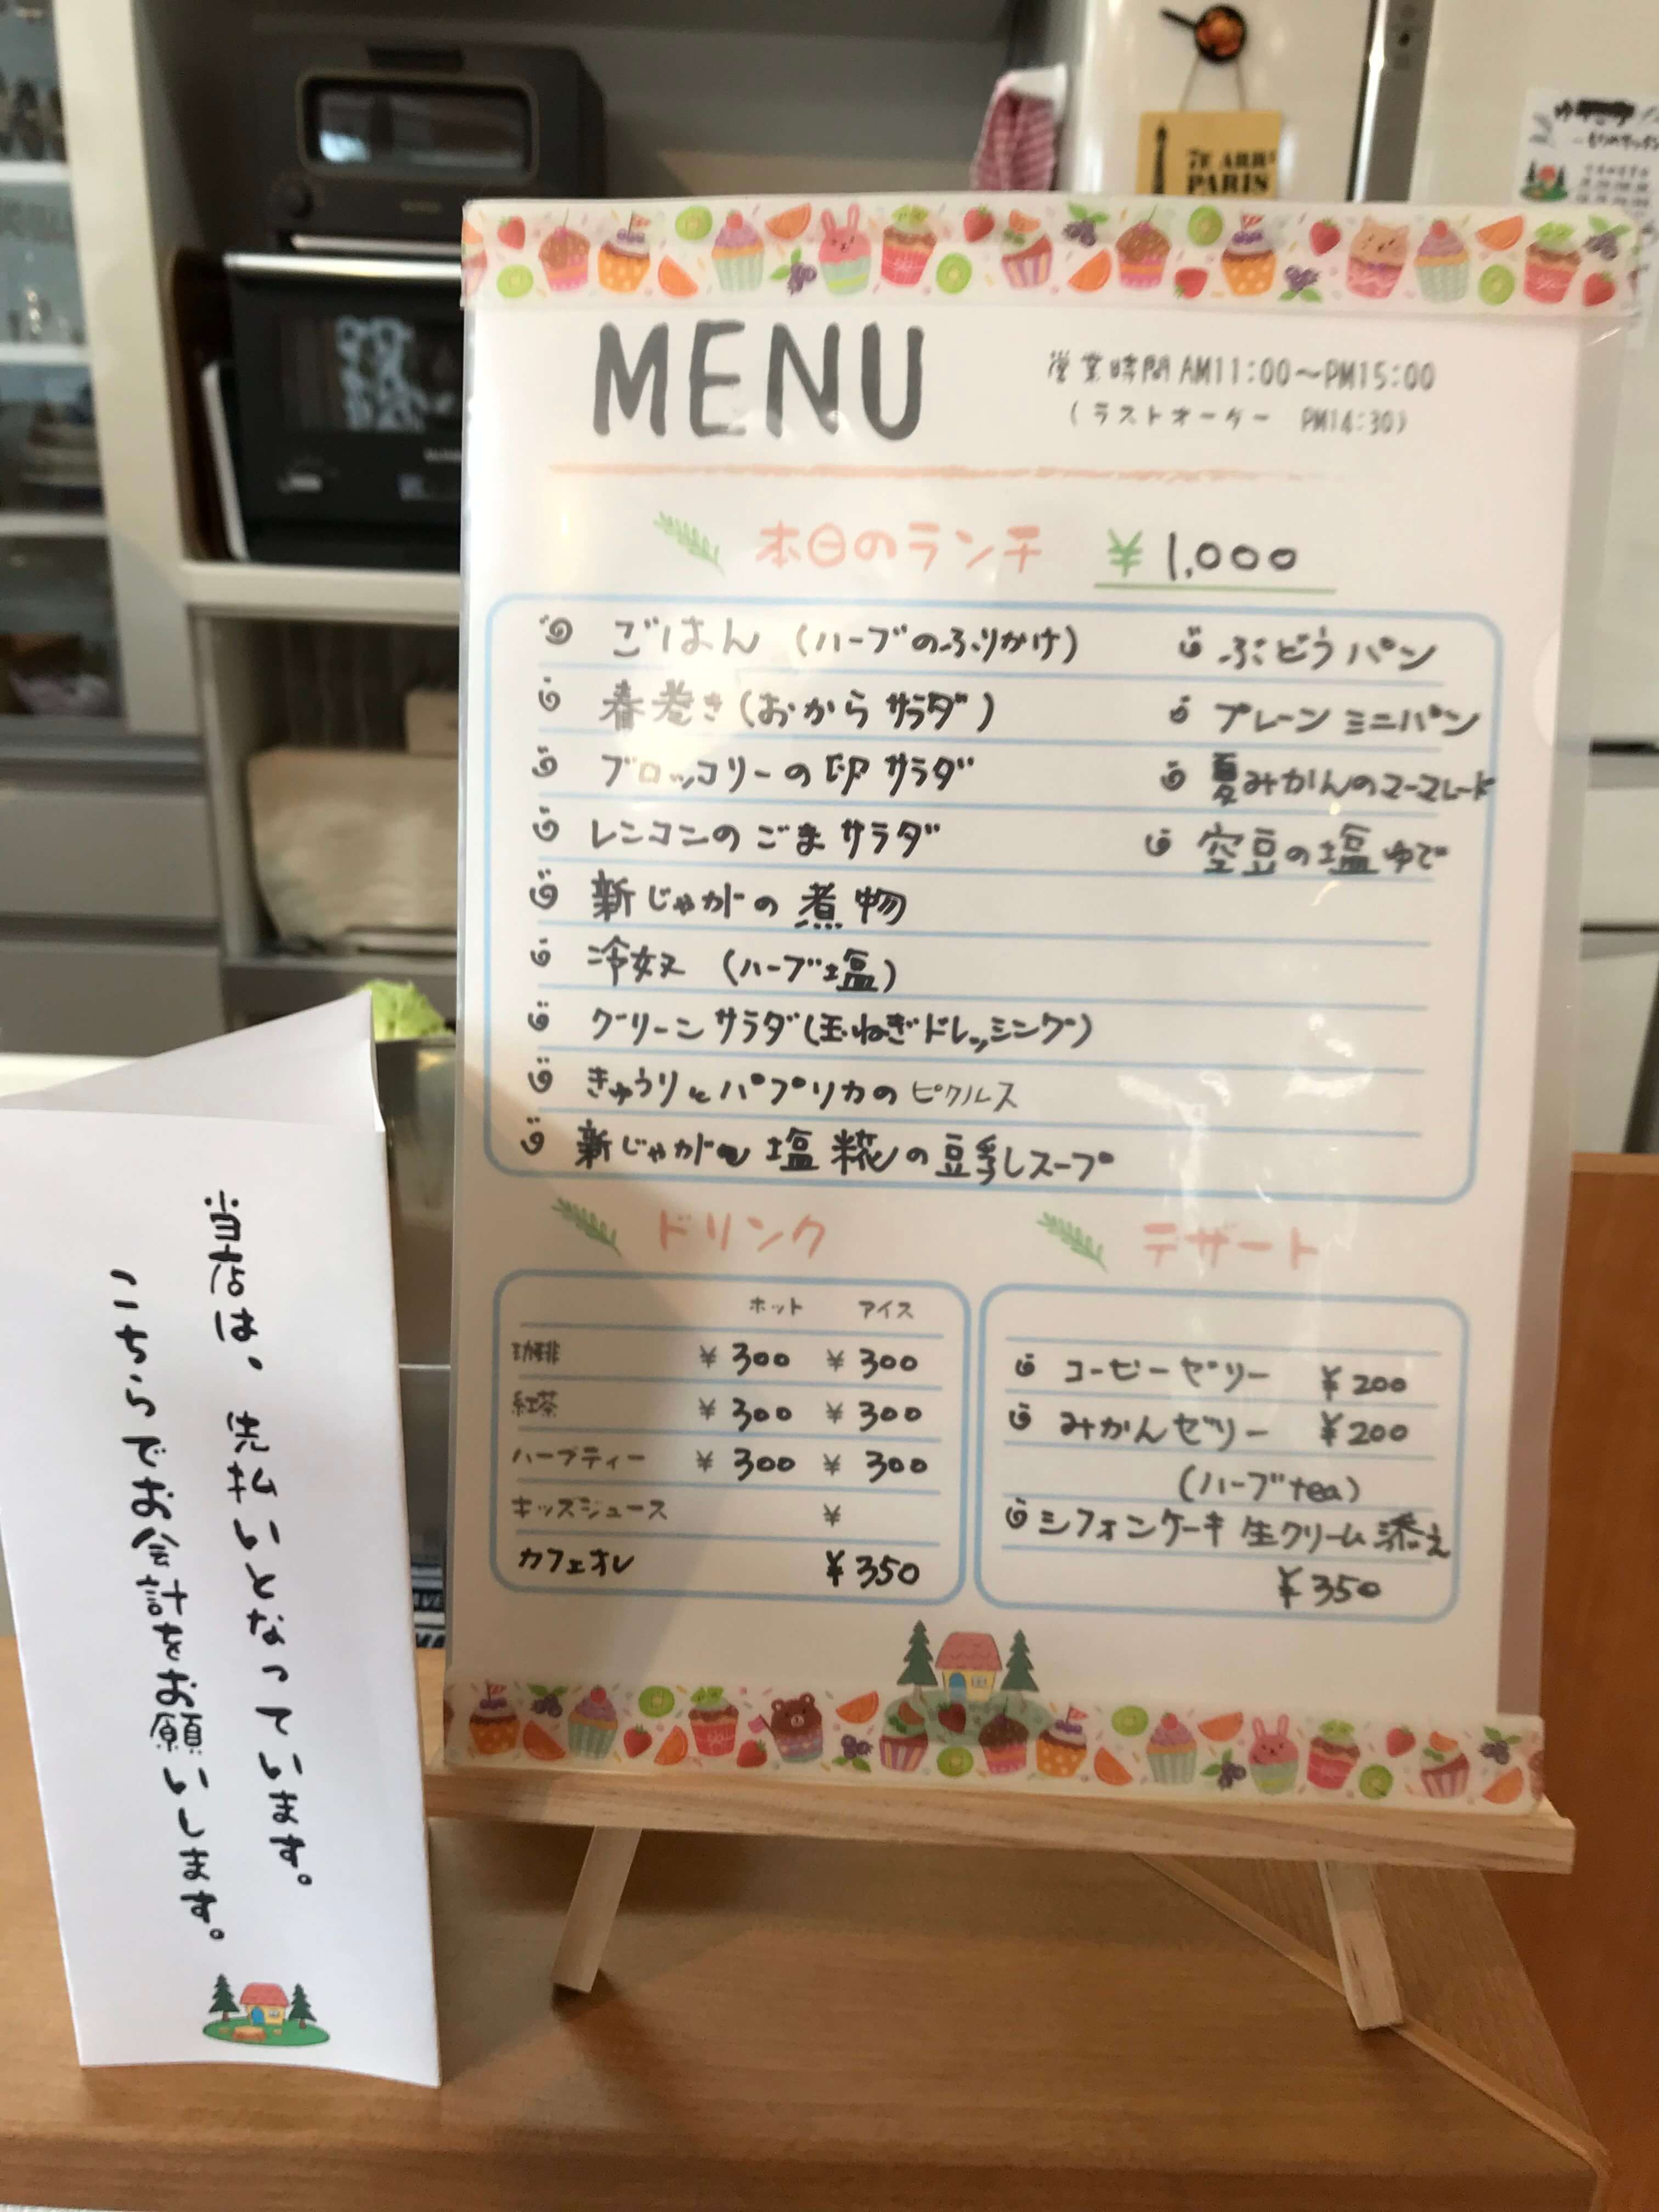 7E ARRT
PARIS
MENU
営業時間 AM11:00〜PM15:00
(ラストオーダー PM14:30)
本日のランチ ¥1,000
ごはん (ハーブのふりかけ)
春巻き(おからサラダ)
ブロッコリーの卵サラダ
レンコンのごまサラダ
新じゃがの煮物
冷奴 (ハーブ塩)
グリーンサラダ(玉ねぎドレッシング)
きゅうりとパプリカのピクルス
新じゃがと塩糀の豆乳スープ
ぶどうパン
プレーンミニパン
夏みかんのマーマレード
空豆の塩ゆで
ドリンク
ホット アイス
珈琲 ¥300 ¥300
紅茶 ¥300 ¥300
ハーブティー ¥300 ¥300
キッズジュース ¥
カフェオレ ¥350
デザート
コーヒーゼリー ¥200
みかんゼリー ¥200
(ハーブtea)
シフォンケーキ 生クリーム添え
¥350
当店は、先払いとなっています。
こちらでお会計をお願いします。